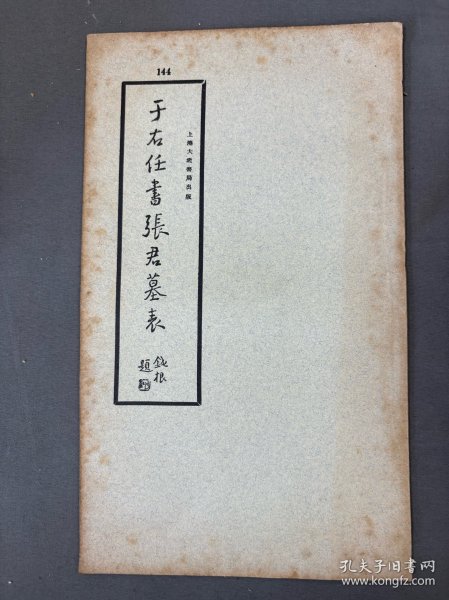 144
于右任書張君墓表
鈍根
題
上海大眾書局出版
孔夫子旧书网
www.kongfz.com